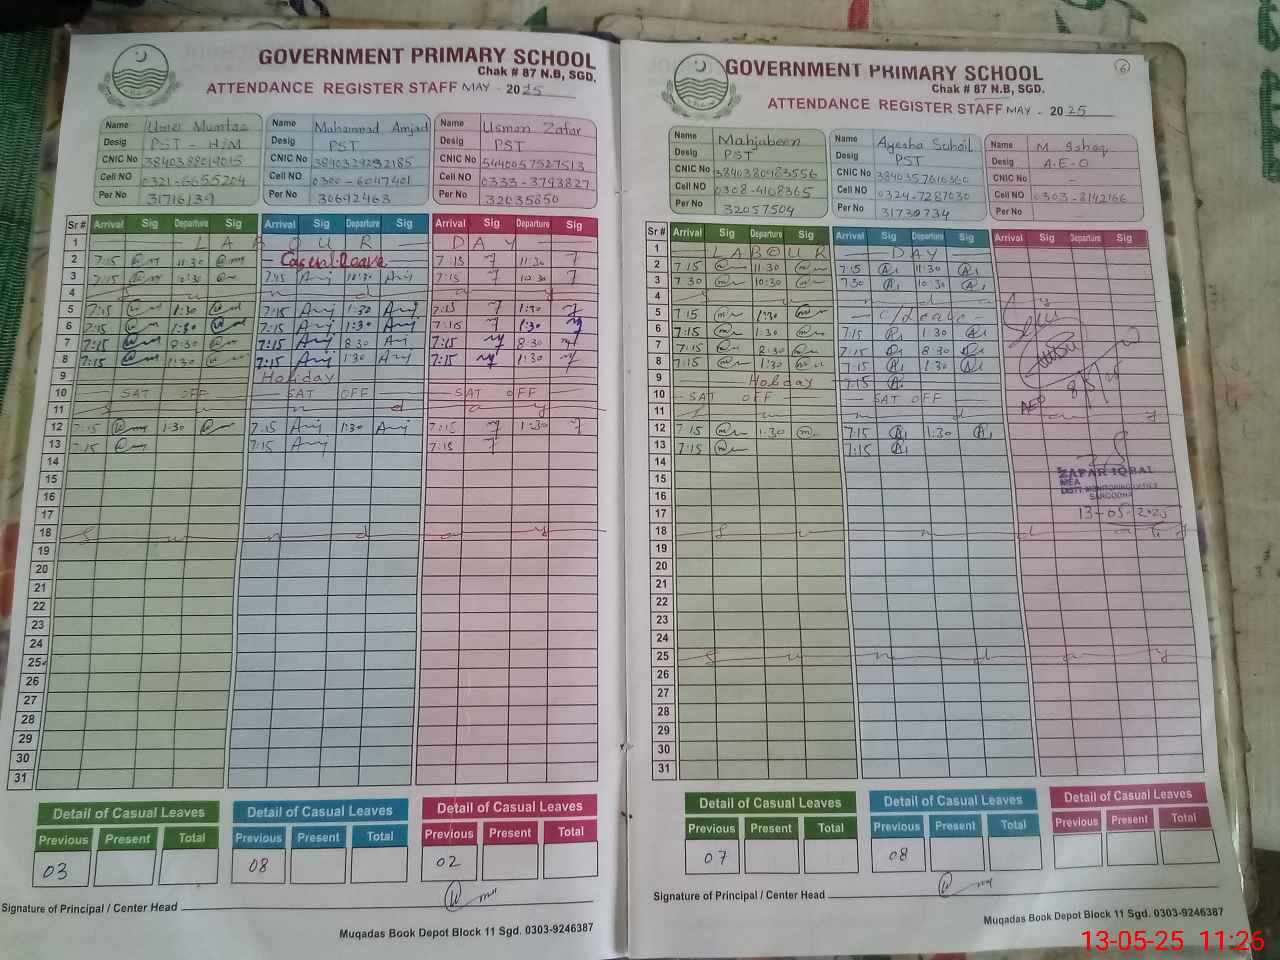 GOVERNMENT PRIMARY SCHOOL
Chak # 87 N.B, SGD.
ATTENDANCE REGISTER STAFF MAY - 2025
Name Umer Mumtaz
Desig PST - H/M
CNIC No 3840388019015
Cell NO 0321-6655204
Per No 3171613 9
Name Muhammad Amjad
Desig PST
CNIC No 3840329292185
Cell NO 0300-6047401
Per No 30692463
Name Usman Zafar
Desig PST
CNIC No 5440057527513
Cell NO 0333-3793827
Per No 32035850
Sr # Arrival Sig Departure Sig Arrival Sig Departure Sig Arrival Sig Departure Sig
1 LABOUR DAY
2 7:15 11:30 Casual Leave 7:15 11:30
3 7:15 10:30 7:45 10:30 7:15 10:30
4 Sunday
5 7:15 1:30 7:15 1:30 7:15 1:30
6 7:15 1:30 7:15 1:30 7:15 1:30
7 7:15 8:30 7:15 8:30 7:15 8:30
8 7:15 1:30 7:15 1:30 7:15 1:30
9 Holiday
10 SAT OFF SAT OFF SAT OFF
11 Sunday
12 7:15 1:30 7:15 1:30 7:15 1:30
13 7:15 7:15 7:15
14
15
16
17
18 Sunday
19
20
21
22
23
24
25
26
27
28
29
30
31
Detail of Casual Leaves Detail of Casual Leaves Detail of Casual Leaves
Previous Present Total Previous Present Total Previous Present Total
03 08 02
Signature of Principal / Center Head
Muqadas Book Depot Block 11 Sgd. 0303-9246387
6
GOVERNMENT PRIMARY SCHOOL
Chak # 87 N.B, SGD.
ATTENDANCE REGISTER STAFF MAY - 2025
Name Mahjabeen
Desig PST
CNIC No 3840380483556
Cell NO 0308-4108365
Per No 32057504
Name Ayesha Suhail
Desig PST
CNIC No 3840357616360
Cell NO 0324-7287030
Per No 31730734
Name M Ishaq
Desig A.E.O
CNIC No -
Cell NO 0303-8142166
Per No -
Sr # Arrival Sig Departure Sig Arrival Sig Departure Sig Arrival Sig Departure Sig
1 LABOUR DAY
2 7:15 11:30 7:15 11:30
3 7:30 10:30 7:30 10:30
4 Sunday
5 7:15 1:30 C/Leave
6 7:15 1:30 7:15 1:30
7 7:15 8:30 7:15 8:30
8 7:15 1:30 7:15 1:30
9 Holiday 7:15
10 SAT OFF SAT OFF
11 Sunday
12 7:15 1:30 7:15 1:30
13 7:15 7:15
14
15
16
17
18 Sunday
19
20
21
22
23
24
25 Sunday
26
27
28
29
30
31
AEO
ZAFAR IQBAL
MEA
DISTT MONITORING OFFICE
SARGODHA
13-05-2025
Detail of Casual Leaves Detail of Casual Leaves Detail of Casual Leaves
Previous Present Total Previous Present Total Previous Present Total
07 08
Signature of Principal / Center Head
Muqadas Book Depot Block 11 Sgd. 0303-9246387
13-05-25 11:26